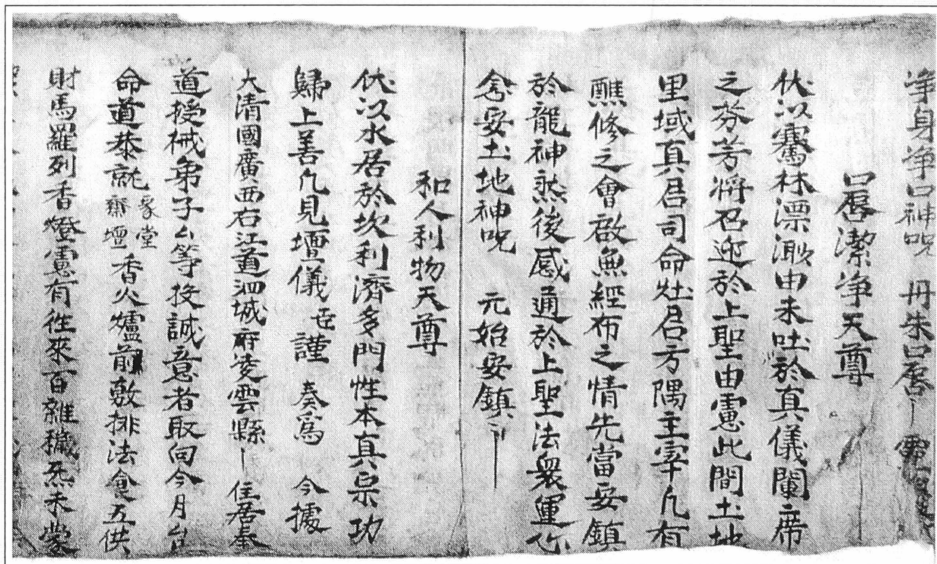 淨身淨口神呪 丹朱口唇
口唇潔淨天尊
伏以騫林漂溵由未吐於真儀闌席
之芬芳將召迎於上聖由慮此間土地
里域真君司命灶君方隅主宰凡有
醮修之會啟無經布之情先當安鎮
於龍神然後感通於上聖法衆運心
念安土地神呪 元始安鎮
和人利物天尊
伏以水居於坎利濟多門性本真宗功
歸上善凡見壇儀 臣謹 奏為 今據
大清國廣西右江道泗城府凌雲縣 住居奉
道授械弟子厶等投誠意者取向今月吉
命道恭就家堂齋壇香火爐前敷排法食五供
財馬羅列香燈慮有往來百雜穢炁未蒙